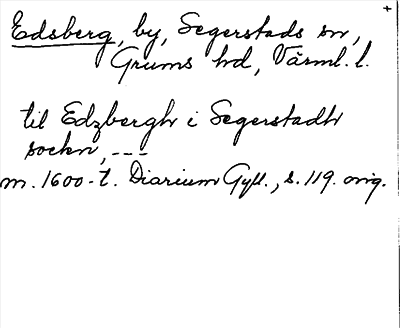 Edsberg, by, Segerstads sn,
Grums hd, Värml. l.
til Edzbergh i Segerstadh
sockn, ---
m. 1600-t. Diarium Gyll., s. 119. orig.